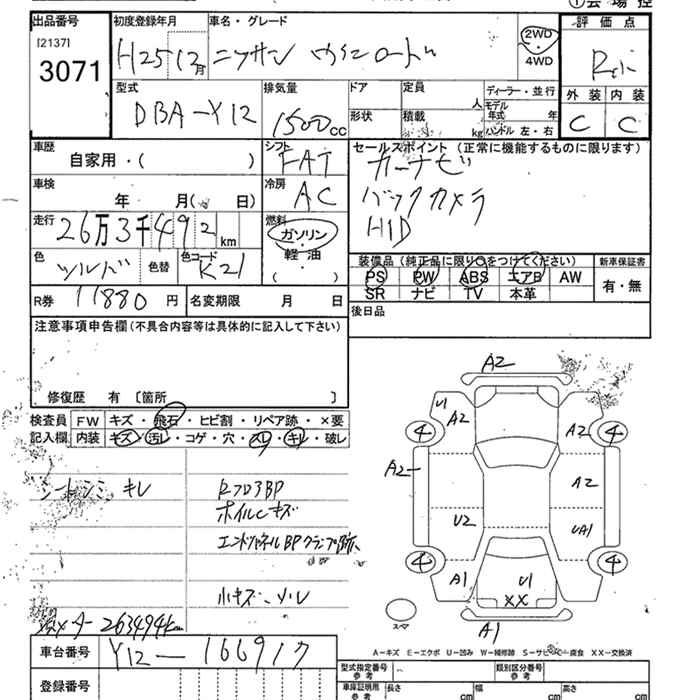 ①会場控
出品番号 初度登録年月 車名・グレード 評価点
[2137]
3071
H25 12月 ニッサン ウイングロード 2WD・4WD
型式 排気量 ドア 定員 人 ディーラー・並行
DBA-Y12 1500cc 形状 積載 kg モデル年式 年 ハンドル 左・右
外装 内装
C C
車歴 シフト セールスポイント(正常に機能するものに限ります)
自家用・( ) FAT カーナビ
車検 冷房 バックカメラ
年 月( 日) AC HID
走行 燃料
26万3千492km ガソリン・軽油・( )
色 色替 色コード
シルバ K21
装備品(純正品に限り○をつけてください) 新車保証書
PS PW ABS エアB AW 有・無
SR ナビ TV 本革
R券 11880円 名変期限 月 日 後日品
注意事項申告欄(不具合内容等は具体的に記入して下さい)
修復歴 有 〔箇所 〕
検査員記入欄 FW キズ・飛石・ヒビ割・リペア跡・×要
内装 キズ・汚レ・コゲ・穴・スレ・キレ・破レ
シートシミ、キレ
ホイルキズ
エンドパネルBPクランプ跡
小キズ
263494km
A2
U1 A2 A2
4 4
A2 A2
U2 UA1
4 4
A1 U1
XX
A1
スペア
A-キズ E-エクボ U-凹み W-補修跡 S-サビ C-腐食 XX-交換済
車台番号 Y12-166917
登録番号
型式指定番号 類別区分番号
車庫証明用参考 長さ cm 幅 cm 高さ cm